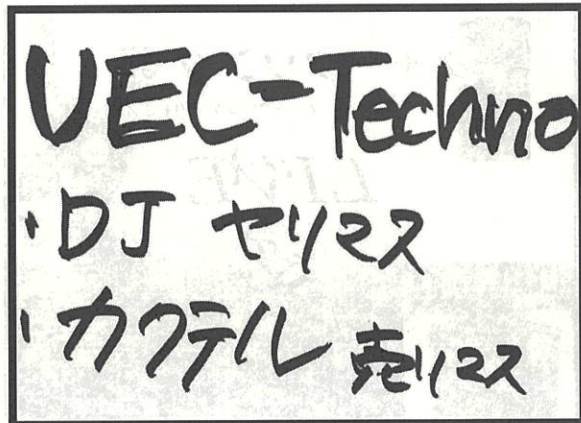 UEC-Techno
・DJ ヤリマス
・カクテル 売リマス